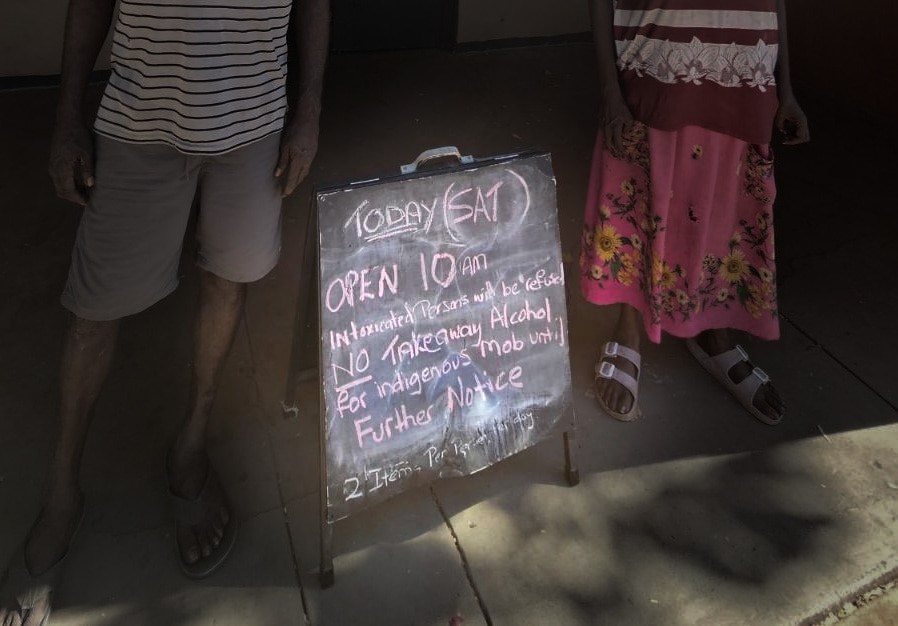 TODAY (SAT)
OPEN 10 AM
Intoxicated Persons will be refused
NO TAKeaway Alcohol,
For indigenous Mob until
Further Notice
2 Item Per Person Per day